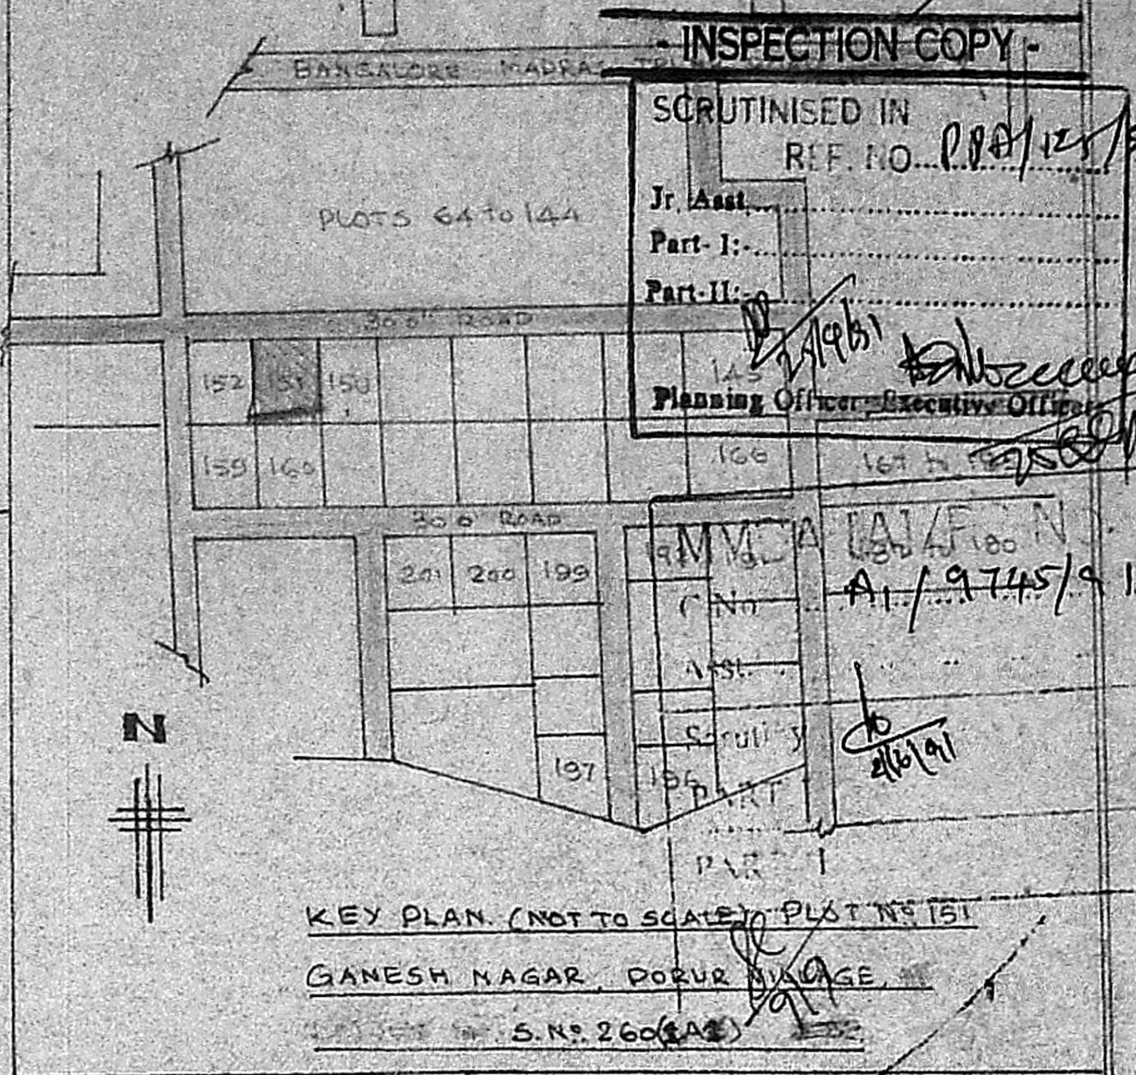 - INSPECTION COPY -
BANGALORE MADRAS
SCRUTINISED IN
REF. NO....PPA/125/
Jr. Asst.
Part- I:-
Part-II:-
Planning Officer Executive Officer
PLOTS 64 TO 144
30'0" ROAD
152 151 150 145
159 160 166 167 to
30'0" ROAD
201 200 199
MMDA
C No A1/9745/91
Asst.
Scrutiny
2/6/91
197 196
PART
PART I
N
KEY PLAN (NOT TO SCALE) PLOT Nº 151
GANESH NAGAR, PORUR VILLAGE,
S. Nº 260